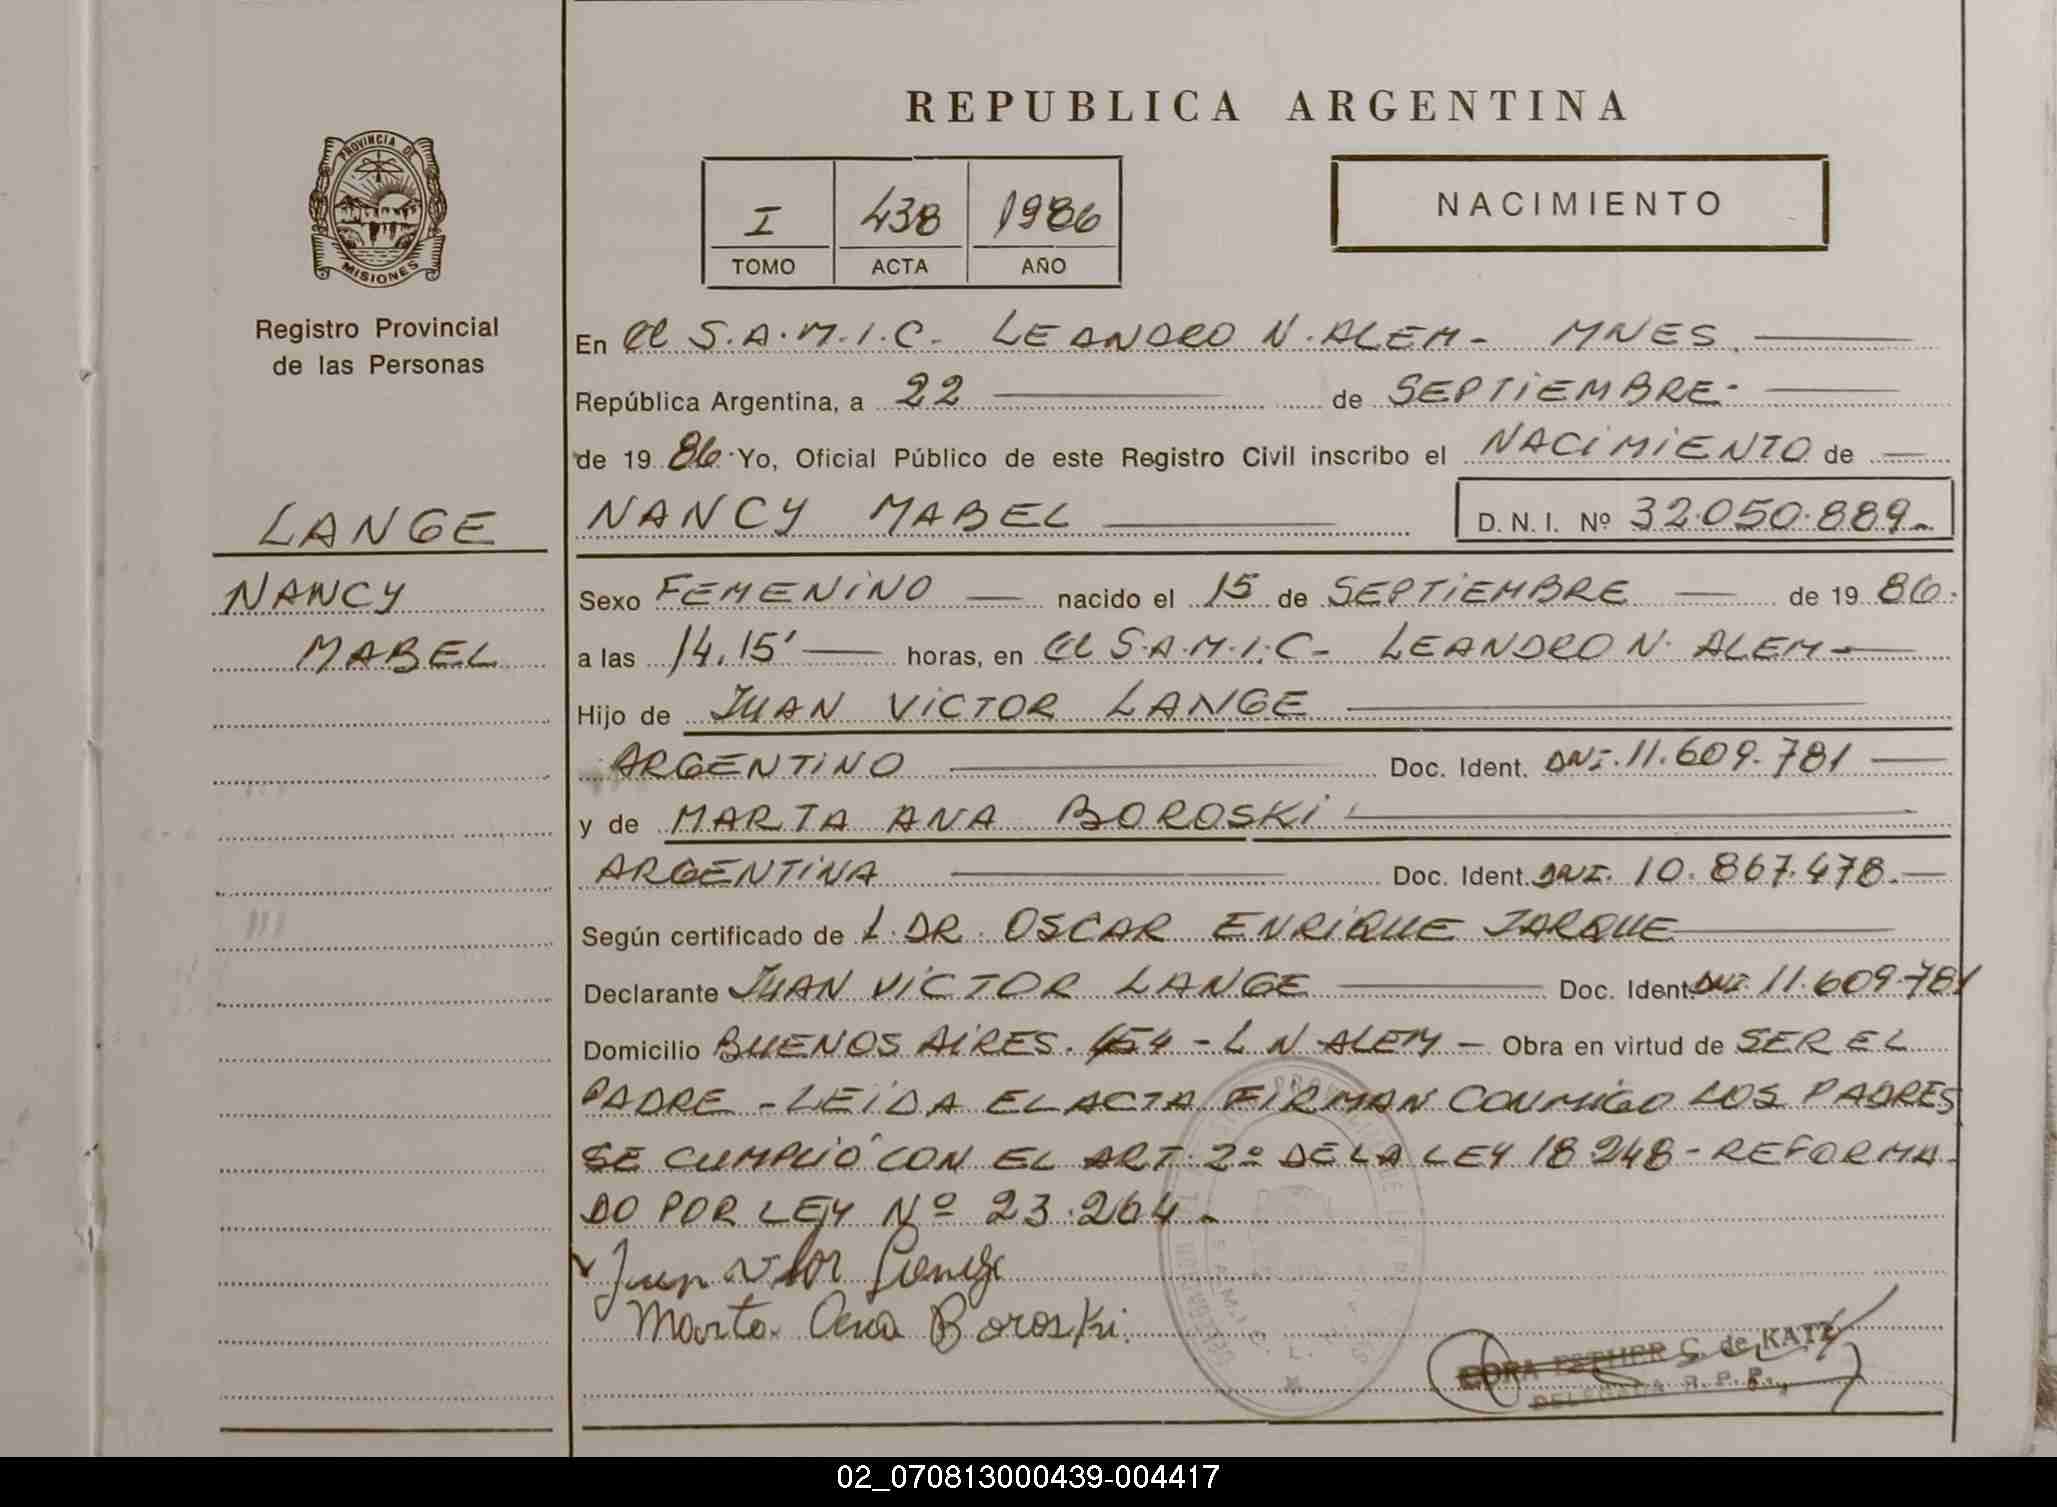 REPUBLICA ARGENTINA
PROVINCIA DE
MISIONES
I 438 1986
TOMO ACTA AÑO
NACIMIENTO
Registro Provincial
de las Personas
LANGE
NANCY
MABEL
En el S.A.M.I.C. LEANDRO N. ALEM - MNES.
República Argentina, a 22 de SEPTIEMBRE -
de 19 86. Yo, Oficial Público de este Registro Civil inscribo el NACIMIENTO de
NANCY MABEL D. N. I. Nº 32.050.889.-
Sexo FEMENINO nacido el 15 de SEPTIEMBRE de 19 86.
a las 14,15' horas, en el S.A.M.I.C - LEANDRO N. ALEM -
Hijo de JUAN VICTOR LANGE
ARGENTINO Doc. Ident. DNI. 11.609.781
y de MARTA ANA BOROSKI
ARGENTINA Doc. Ident. DNI. 10.867.478.-
Según certificado de L. DR. OSCAR ENRIQUE JARQUE
Declarante JUAN VICTOR LANGE Doc. Ident. DNI 11.609.781
Domicilio BUENOS AIRES. - L N ALEM - Obra en virtud de SER EL
PADRE - LEIDA EL ACTA FIRMAN CONMIGO LOS PADRES
SE CUMPLIÓ CON EL ART. 2º DE LA LEY 18.248 - REFORMA-
DO POR LEY Nº 23.264.-
Juan Victor Lange
Marta Ana Boroski.
ESTHER G. de KATZ
DELEGADA R. P. P.
02_070813000439-004417